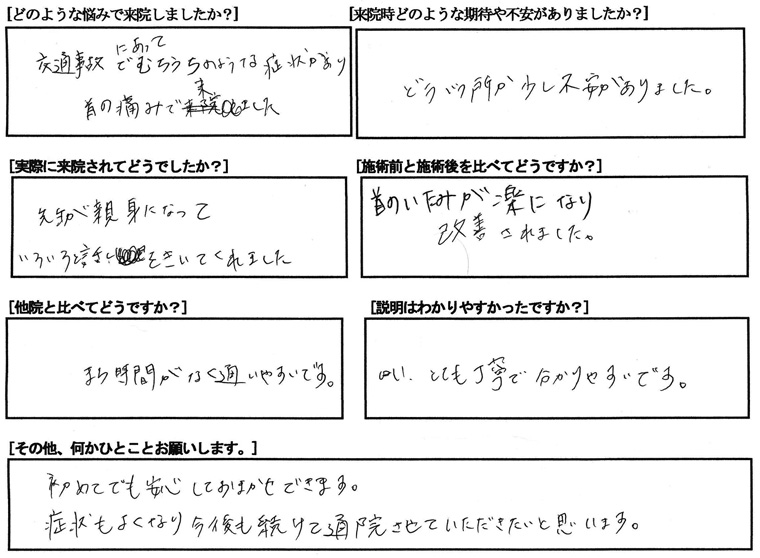 [どのような悩みで来院しましたか？]
交通事故にあってでむちうちのような症状があり
首の痛みで来ました
[来院時どのような期待や不安がありましたか？]
どういう所か少し不安がありました。
[実際に来院されてどうでしたか？]
先生が親身になって
いろいろ話をきいてくれました
[施術前と施術後を比べてどうですか？]
首のいたみが楽になり
改善されました。
[他院と比べてどうですか？]
まち時間がなく通いやすいです。
[説明はわかりやすかったですか？]
はい、とても丁寧で分かりやすいです。
[その他、何かひとことお願いします。]
初めてでも安心しておまかせできます。
症状もよくなり今後も続けて通院させていただきたいと思います。